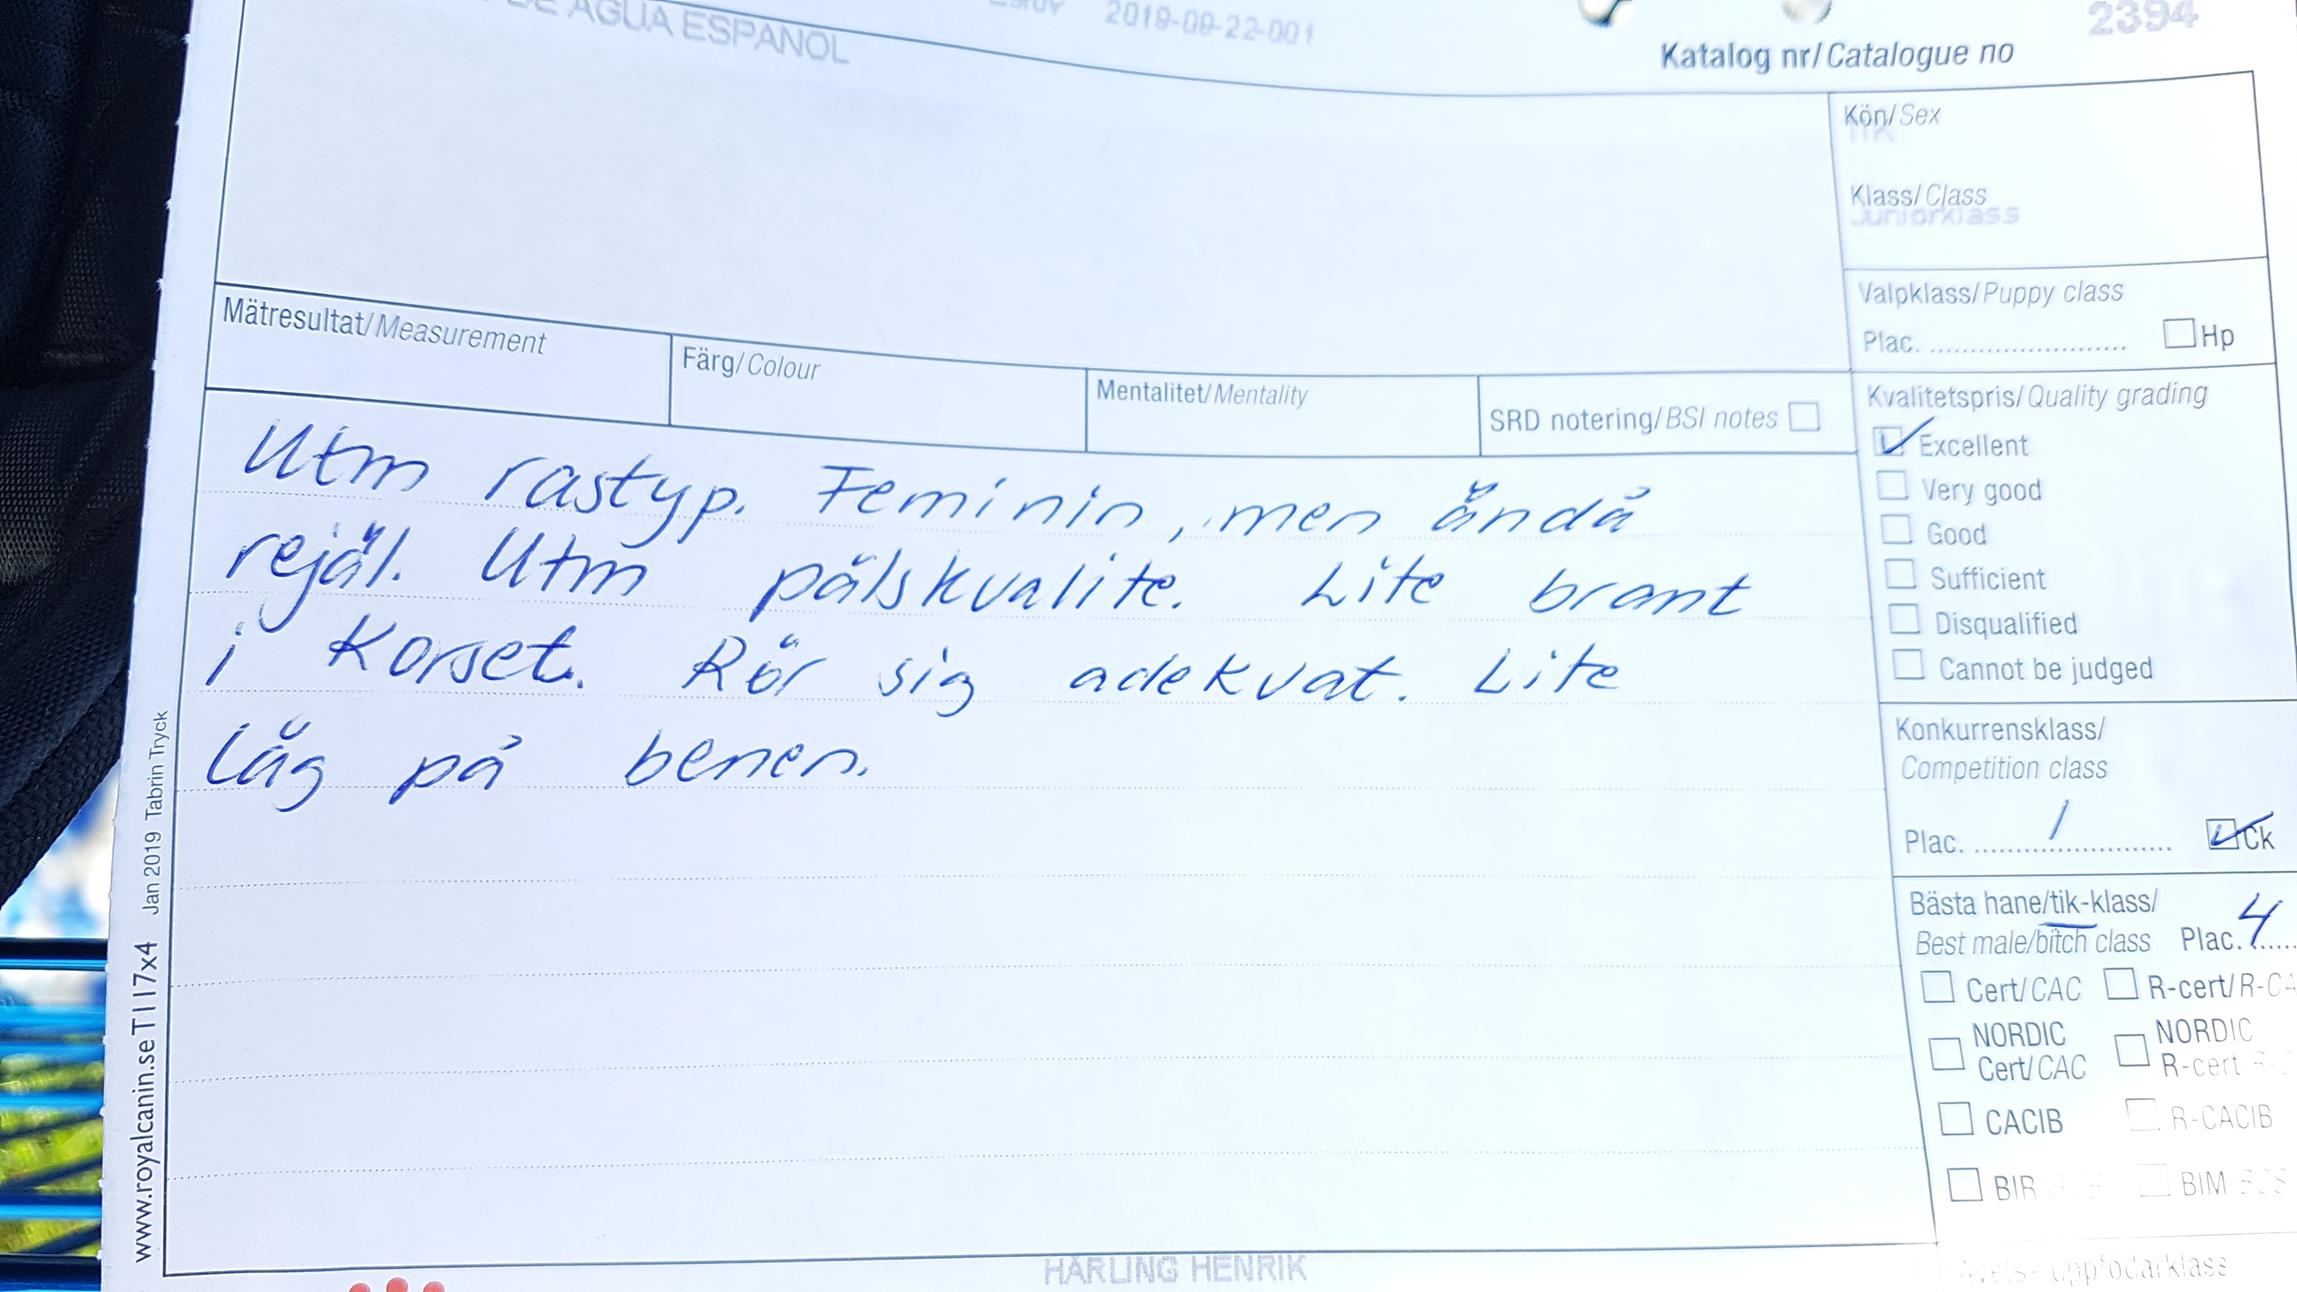 DE AGUA ESPANOL
2019-09-22-001
2394
Katalog nr/Catalogue no
Kön/Sex
TIK
Klass/Class
Juniorklass
Valpklass/Puppy class
Plac. Hp
Mätresultat/Measurement
Färg/Colour
Mentalitet/Mentality
SRD notering/BSI notes
Kvalitetspris/Quality grading
Excellent
Very good
Good
Sufficient
Disqualified
Cannot be judged
Utm rastyp. Feminin, men ändå
rejäl. Utm pälskvalite. Lite brant
i korset. Rör sig adekvat. Lite
låg på benen.
Konkurrensklass/
Competition class
Plac. 1 Ck
Bästa hane/tik-klass/
Best male/bitch class Plac. 4
Cert/CAC R-cert/R-CA
NORDIC NORDIC
Cert/CAC R-cert
CACIB R-CACIB
BIR BIM
www.royalcanin.se T117x4 Jan 2019 Tabrin Tryck
HÄRLING HENRIK